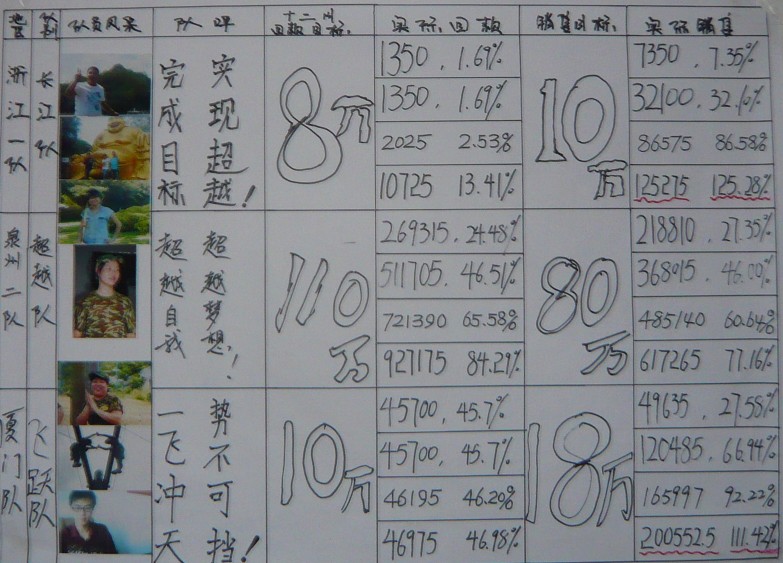 队员风采 队呼 十二州 回款目标: 实际回款 销售目标: 实际销售
浙江一队 长江队 完成目标 实现超越! 8万 10万
1350, 1.69% 7350, 7.35%
1350, 1.69% 32100, 32.10%
2025 2.53% 86575 86.58%
10725 13.41% 125275 125.28%
泉州二队 超越队 超越自我 超越梦想! 110万 80万
269315, 24.48% 218810, 27.35%
511705, 46.51% 368015, 46.00%
721390 65.58% 485140 60.64%
927175 84.29% 617265 77.16%
厦门队 飞跃队 一飞冲天 势不可挡! 10万 18万
45700, 45.7% 49635, 27.58%
45700, 45.7% 120485, 66.94%
46195 46.20% 165997 92.22%
46975 46.98% 200552.5 111.42%